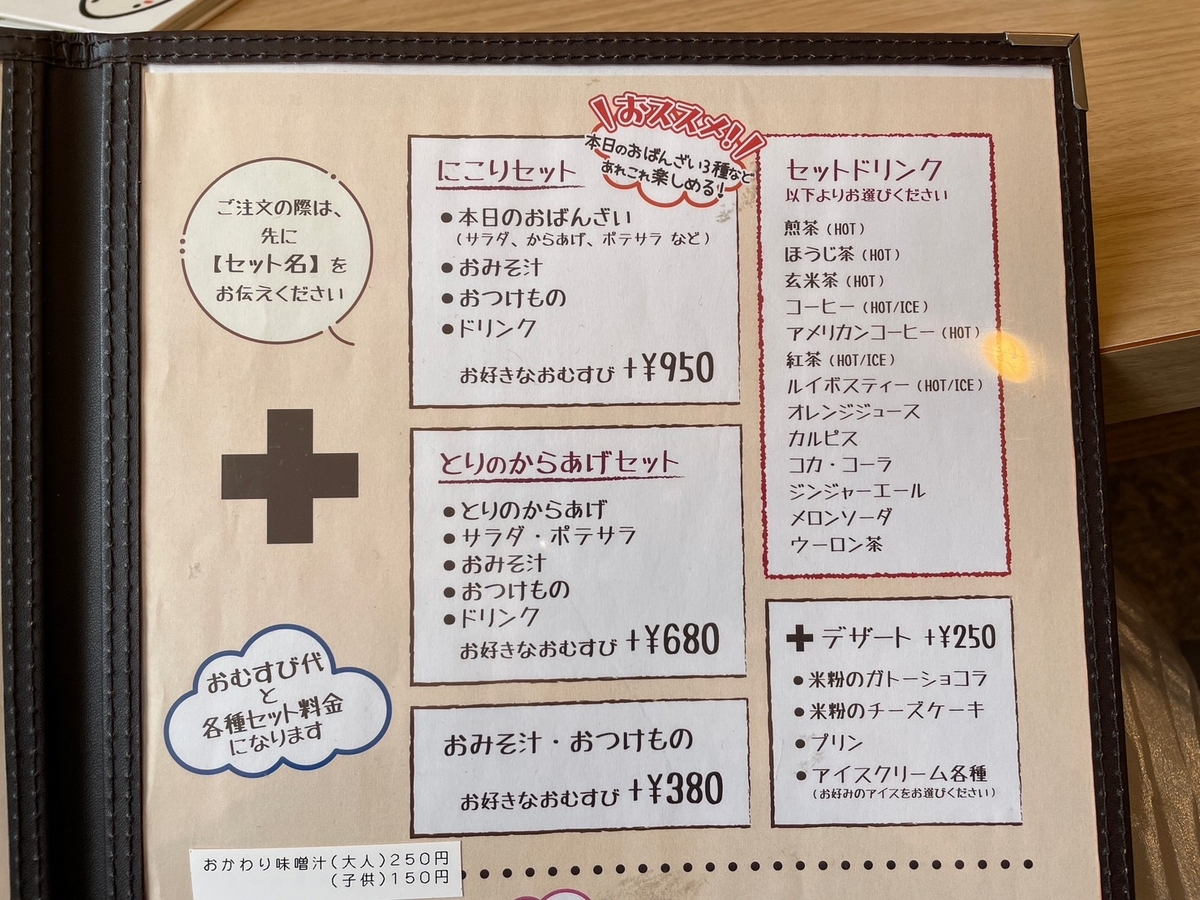 ご注文の際は、
先に
【セット名】を
お伝えください
おむすび代
と
各種セット料金
になります
おススメ!!
本日のおばんざい3種など
あれこれ楽しめる!
にこりセット
●本日のおばんざい
(サラダ、からあげ、ポテサラ など)
●おみそ汁
●おつけもの
●ドリンク
お好きなおむすび +¥950
とりのからあげセット
●とりのからあげ
●サラダ・ポテサラ
●おみそ汁
●おつけもの
●ドリンク
お好きなおむすび +¥680
おみそ汁・おつけもの
お好きなおむすび +¥380
セットドリンク
以下よりお選びください
煎茶(HOT)
ほうじ茶(HOT)
玄米茶(HOT)
コーヒー(HOT/ICE)
アメリカンコーヒー(HOT)
紅茶(HOT/ICE)
ルイボスティー(HOT/ICE)
オレンジジュース
カルピス
コカ・コーラ
ジンジャーエール
メロンソーダ
ウーロン茶
+デザート +¥250
●米粉のガトーショコラ
●米粉のチーズケーキ
●プリン
●アイスクリーム各種
(お好みのアイスをお選びください)
おかわり味噌汁(大人)250円
(子供)150円